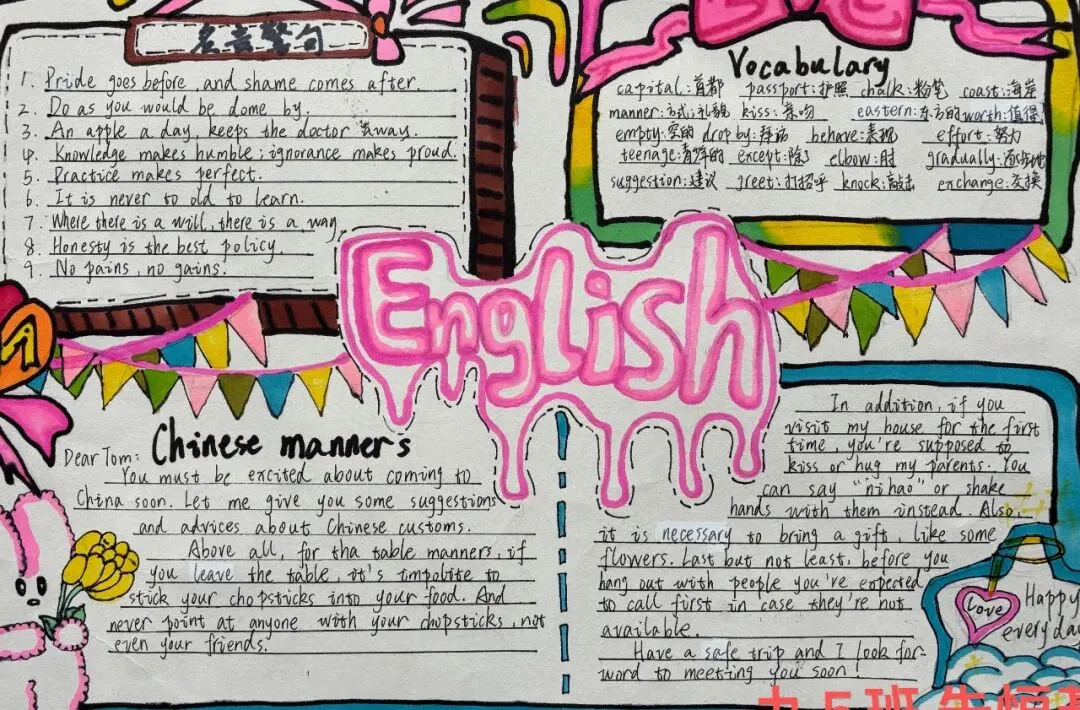 名言警句
1. Pride goes before, and shame comes after.
2. Do as you would be dome by.
3. An apple a day, keeps the doctor away.
4. Knowledge makes humble; ignorance makes proud.
5. Practice makes perfect.
6. It is never to old to learn.
7. Where there is a will, there is a way
8. Honesty is the best policy.
9. No pains, no gains.
Vocabulary
capital:首都 passport:护照 chalk:粉笔 coast:海岸
manner:方式;礼貌 kiss:亲吻 eastern:东方的 worth:值得
empty:空的 drop by:拜访 behave:表现 effort:努力
teenage:青少年的 except:除了 elbow:肘 gradually:逐步地
suggestion:建议 greet:打招呼 knock:敲击 exchange:交换
English
Chinese manners
Dear Tom:
You must be excited about coming to
China soon. Let me give you some suggestions
and advices about Chinese customs.
Above all, for tha table manners, if
you leave the table, it's impolite to
stick your chopsticks into your food. And
never point at anyone with your chopsticks, not
even your friends.
In addition, if you
visit my house for the first
time, you're supposed to
kiss or hug my parents. You
can say "nihao" or shake
hands with them instead. Also,
it is necessary to bring a gift, like some
flowers. Last but not least, before you
hang out with people you're expected
to call first in case they're not
available.
Have a safe trip and I look for-
word to meeting you soon!
Love
Happy
everyday